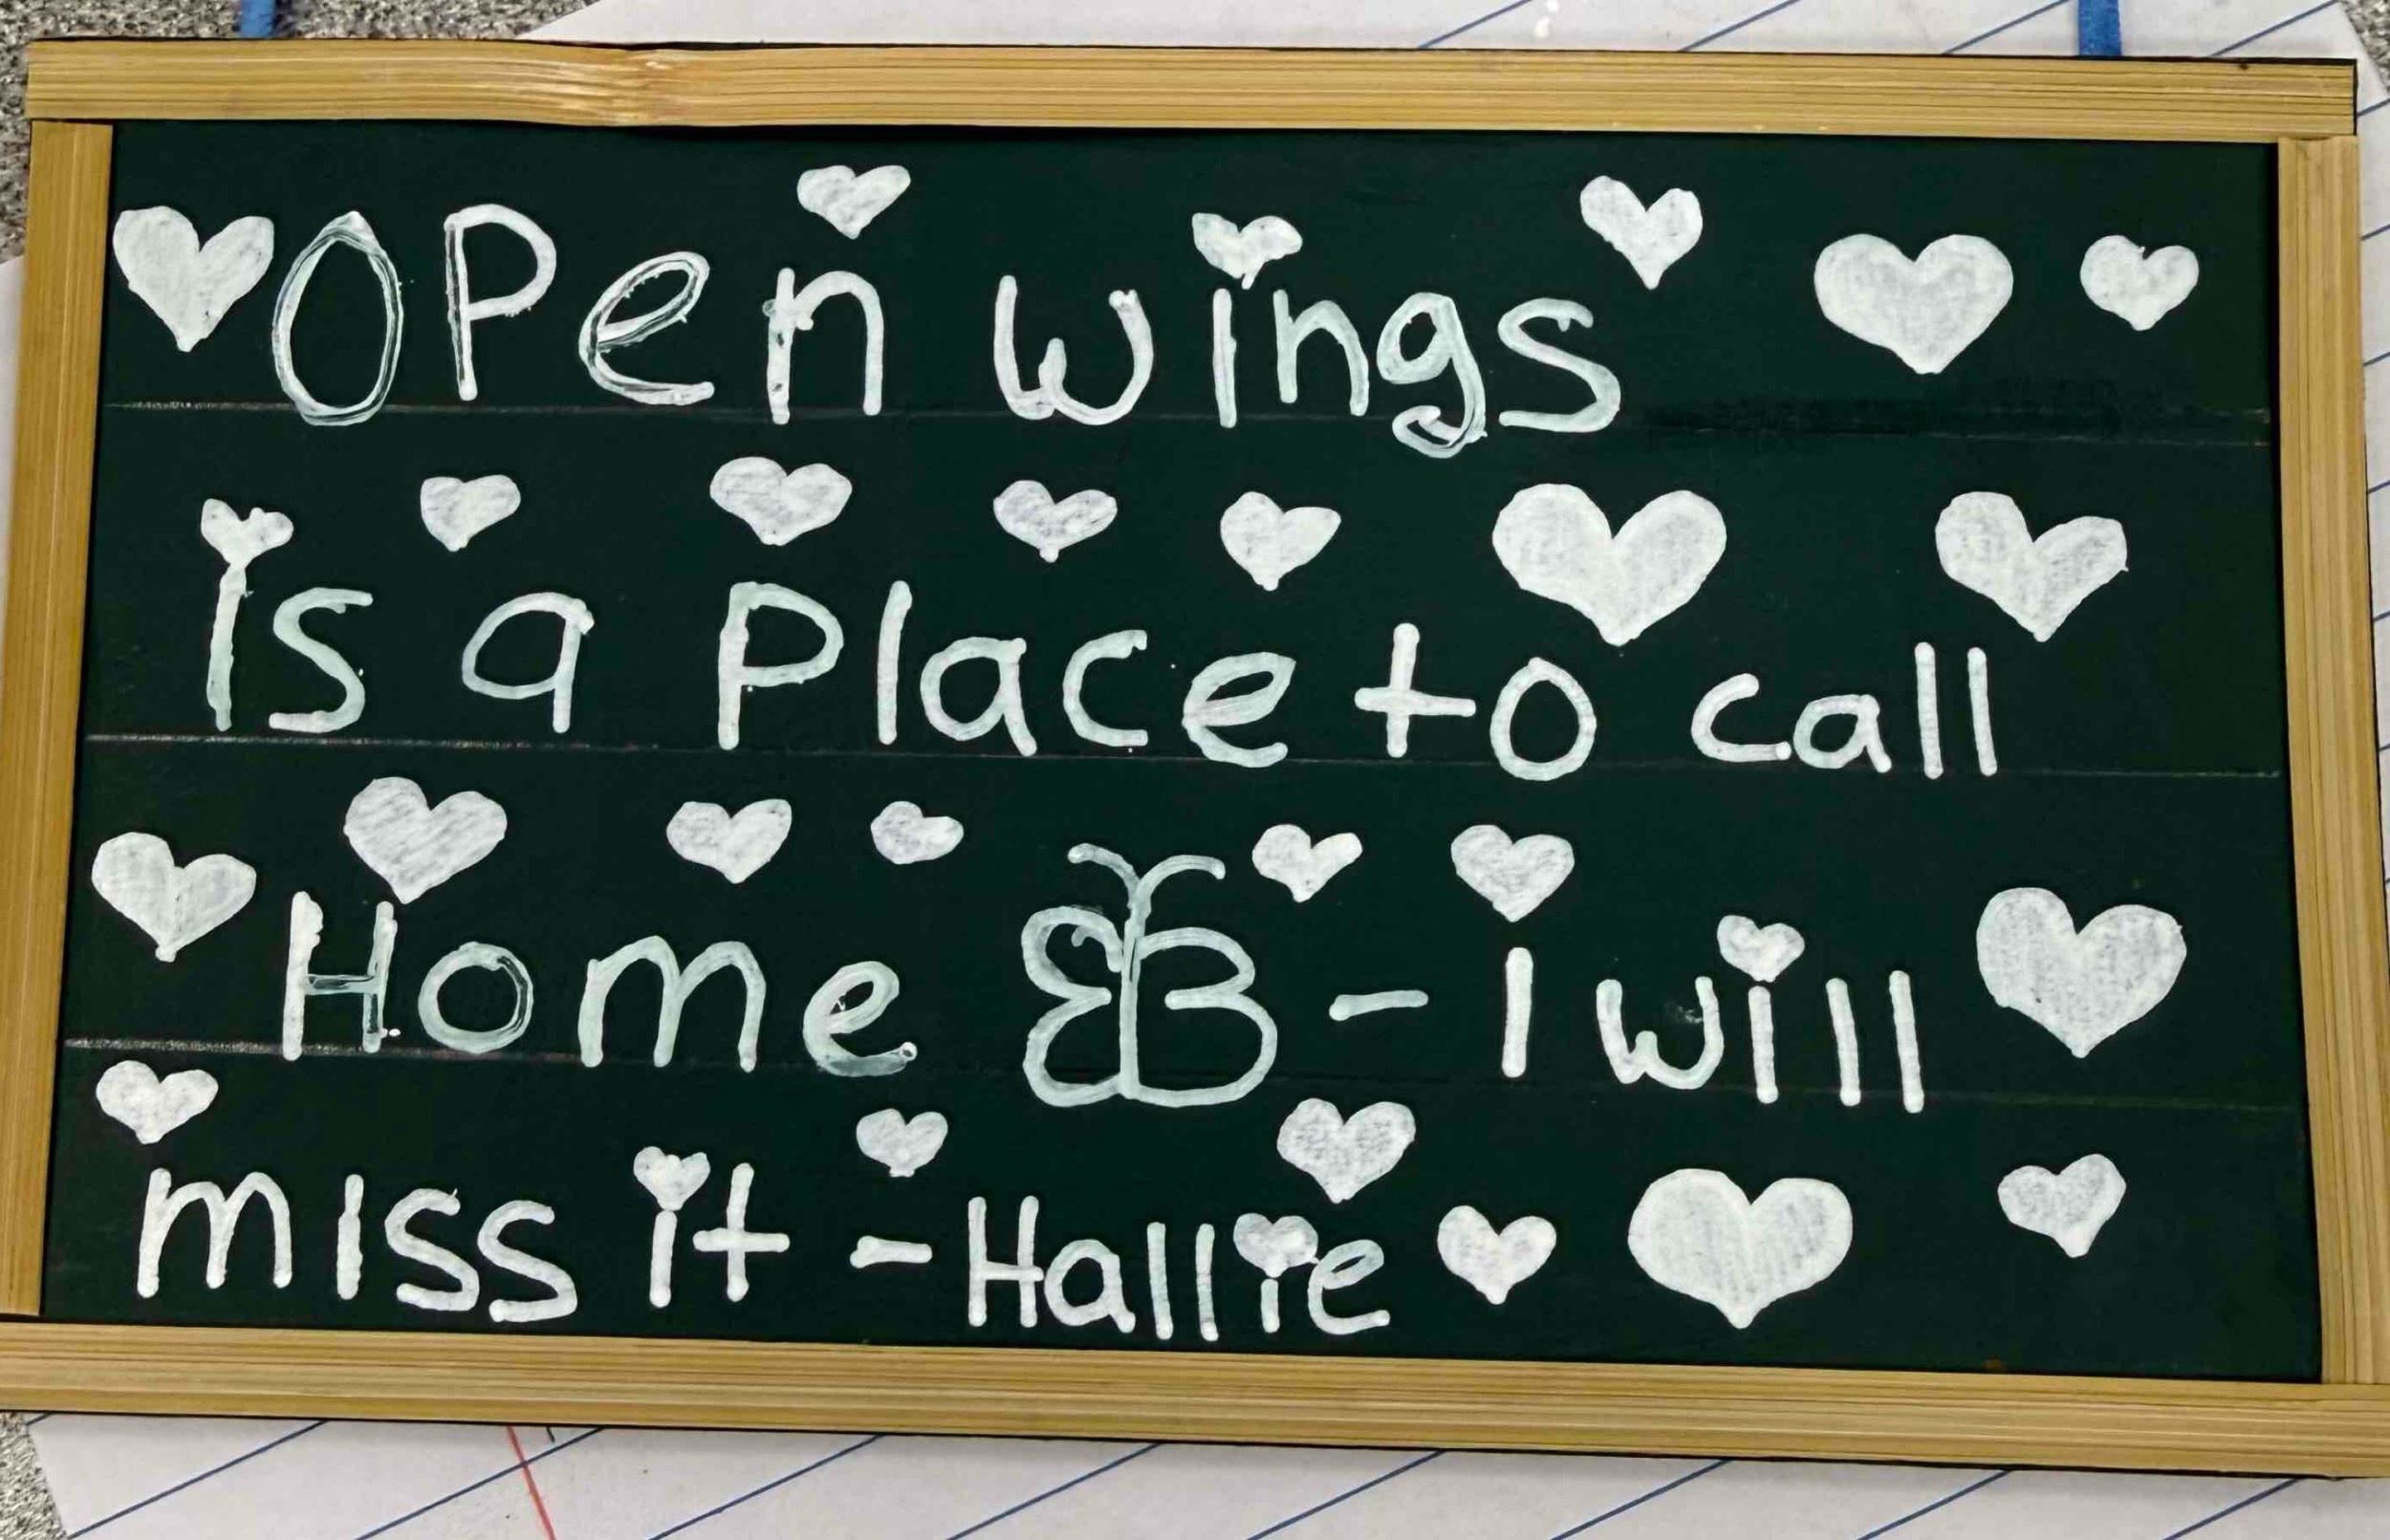 OPen wings
is a Place to call
Home - I will
miss it - Hallie